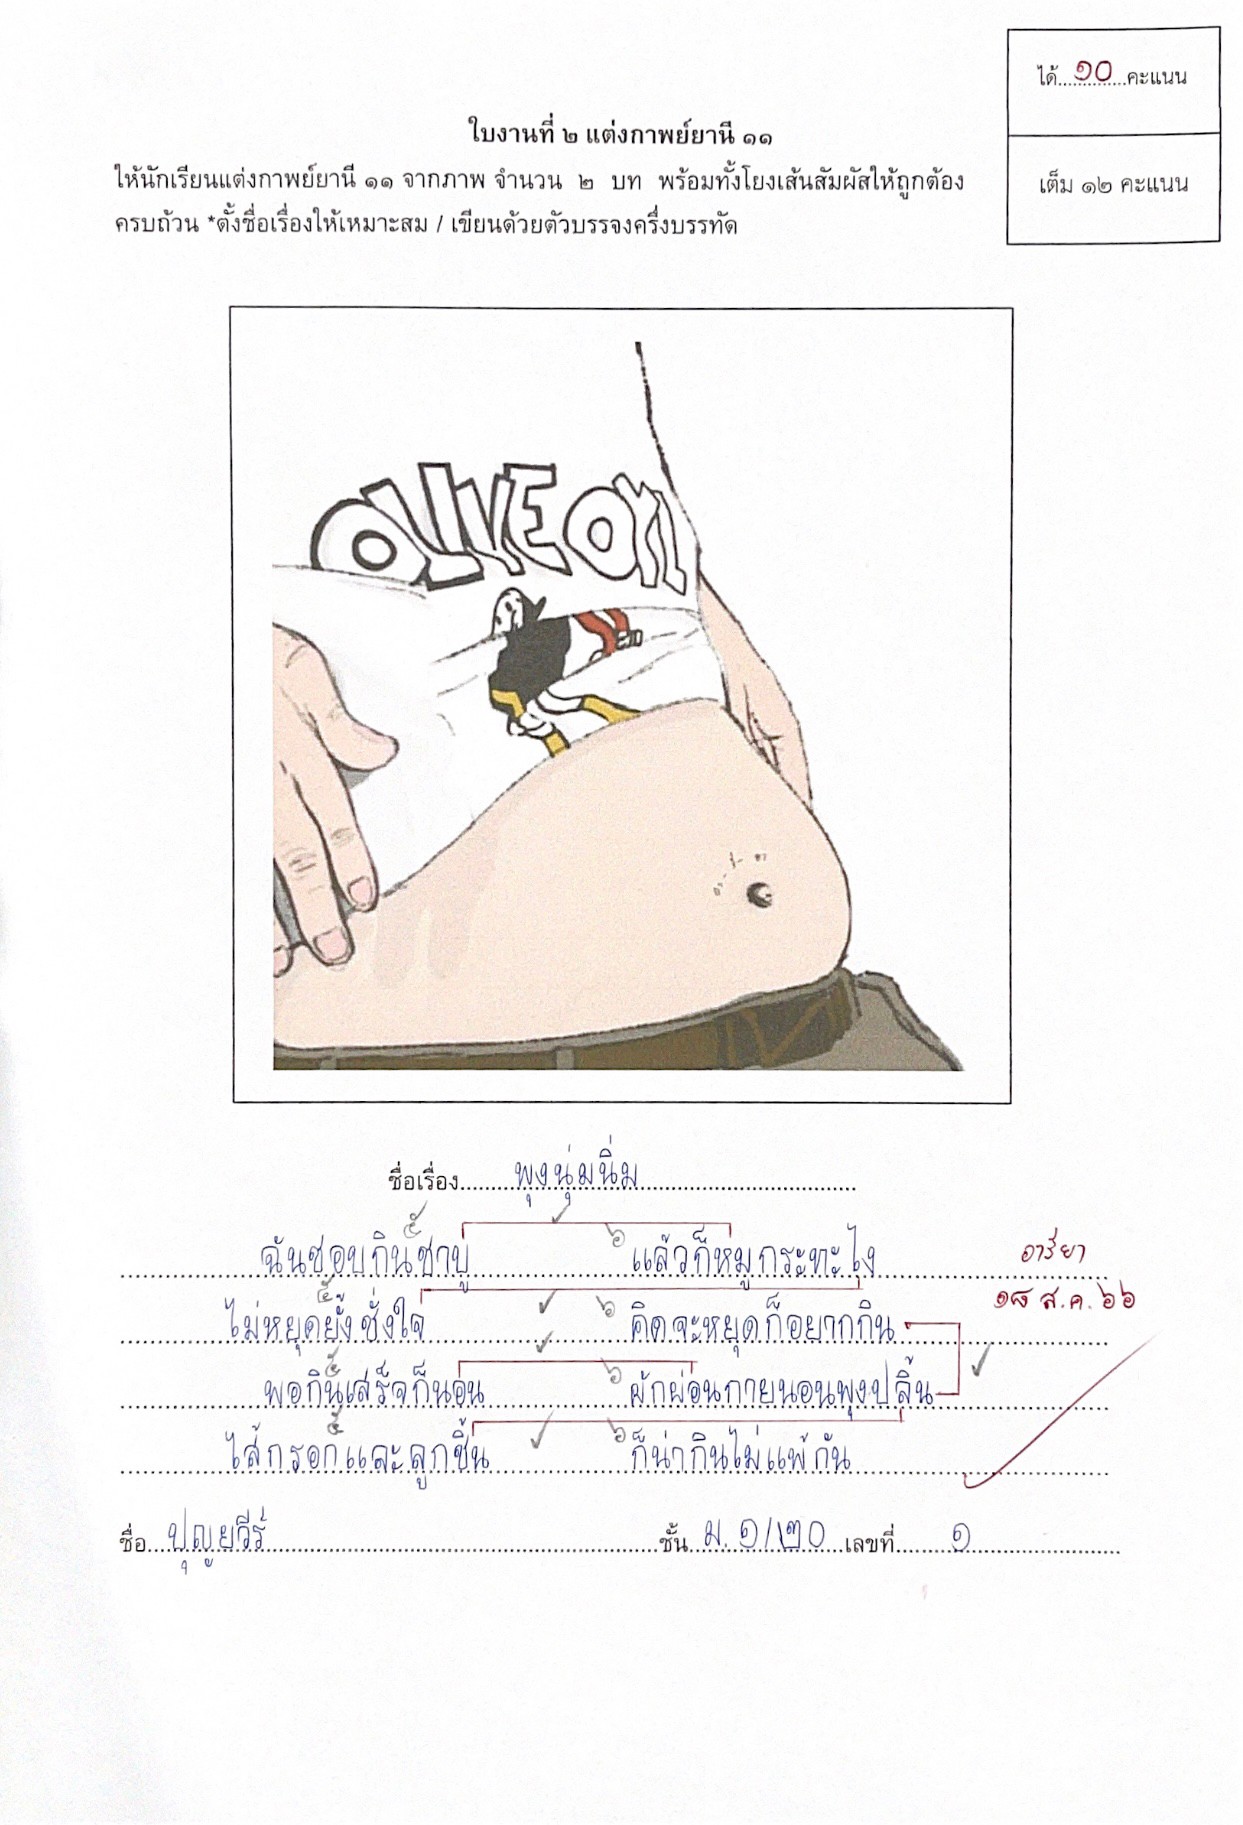 ได้ ๑๐ คะแนน
เต็ม ๑๒ คะแนน
ใบงานที่ ๒ แต่งกาพย์ยานี ๑๑
ให้นักเรียนแต่งกาพย์ยานี ๑๑ จากภาพ จำนวน ๒ บท พร้อมทั้งโยงเส้นสัมผัสให้ถูกต้อง
ครบถ้วน *ตั้งชื่อเรื่องให้เหมาะสม / เขียนด้วยตัวบรรจงครึ่งบรรทัด
OLIVE OYL
ชื่อเรื่อง พุงนุ่มนิ่ม
๕ ๖
ฉันชอบกินชาบู แล้วก็หมูกระทะไง อารียา
๕ ๖
ไม่หยุดยั้งชั่งใจ คิดจะหยุดก็อยากกิน ๑๘ ส.ค. ๖๖
๕ ๖
พอกินเสร็จก็นอน ผักผ่อนกายนอนพุงปลิ้น
๕ ๖
ไส้กรอกและลูกชิ้น ก็น่ากินไม่แพ้กัน
ชื่อ ปุญยวีร์ ชั้น ม. ๑/๒๐ เลขที่ ๑